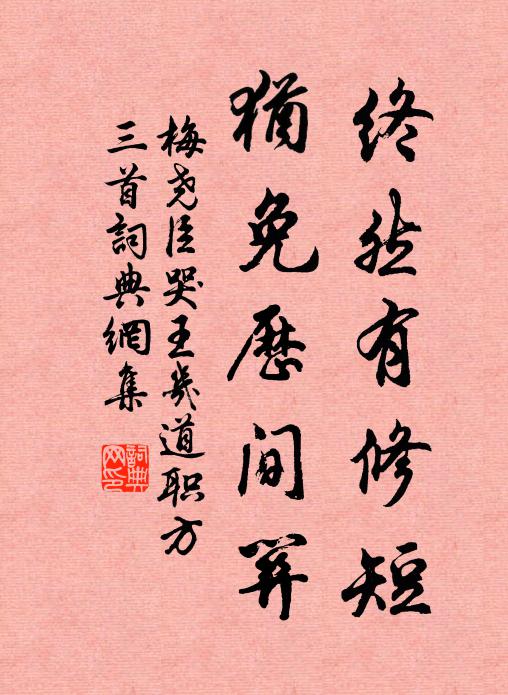 终然有修短
犹免历间箅
梅尧臣哭王几道职方
三首詞典網集
詞典
网印